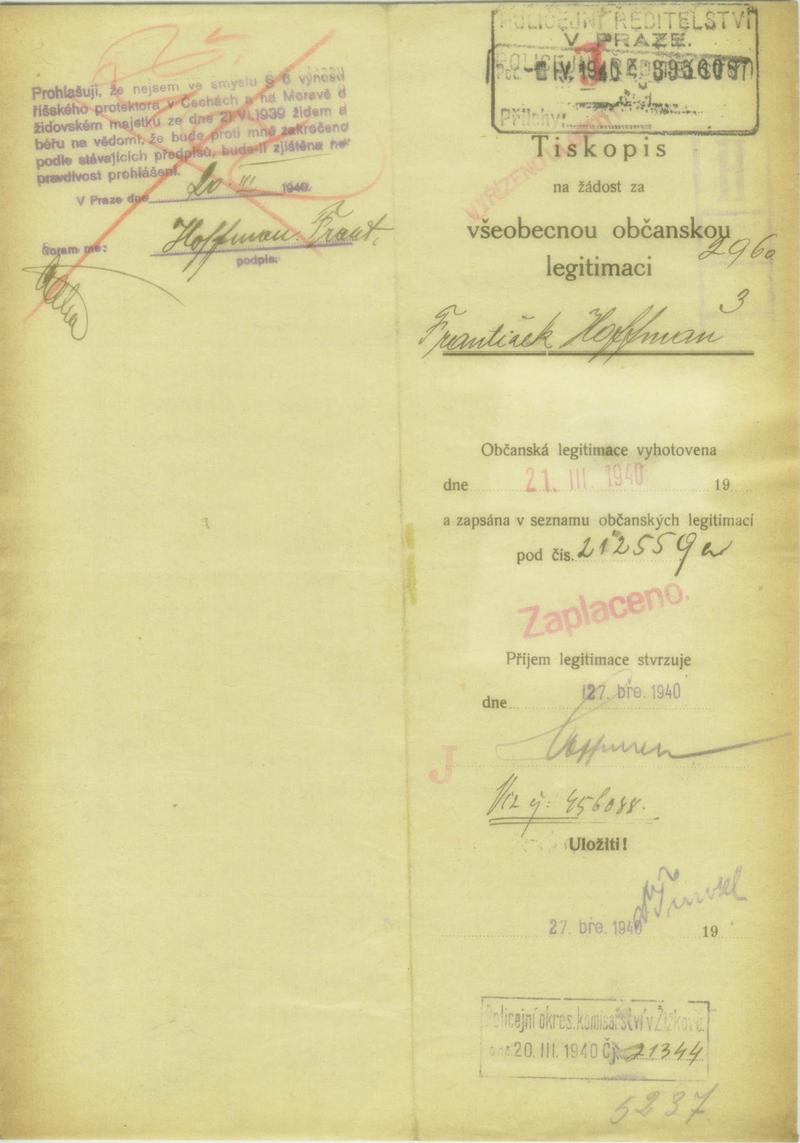 Prohlašuji, že nejsem ve smyslu § 6 výnosu
říšského protektora v Čechách a na Moravě o
židovském majetku ze dne 21. VI. 1939 židem a
béřu na vědomí, že bude proti mně zakročeno
podle stávajících předpisů, bude-li zjištěna ne-
pravdivost prohlášení.
V Praze dne 20. III 1940.
Hoffman Frant.
podpis.
POLICEJNÍ ŘEDITELSTVÍ
V PRAZE.
IV. 1940
Přílohy:
Tiskopis
na žádost za
všeobecnou občanskou
legitimaci
2960
3
František Hoffman
Občanská legitimace vyhotovena
dne 21. III. 1940 19
a zapsána v seznamu občanských legitimací
pod čís. 212559
Zaplaceno.
Příjem legitimace stvrzuje
dne 27. bře. 1940
Hoffman
J
Viz č: 456088.
Uložiti!
27. bře. 1940 19
Policejní okres. komisařství v Žižkově.
dne 20. III. 1940 Čj. 21344
5237